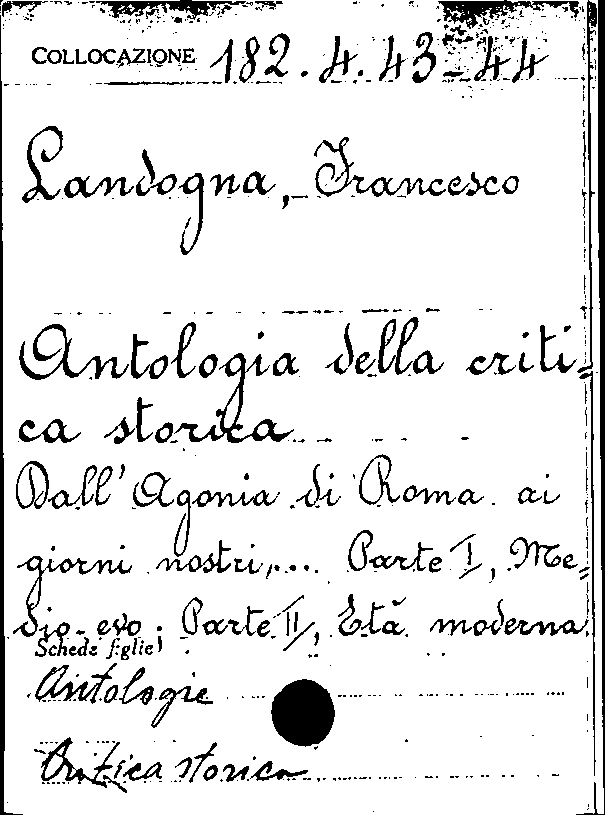 COLLOCAZIONE 182.4.43-44
Landogna, Francesco
Antologia della criti=
ca storica
Dall'Agonia di Roma ai
giorni nostri,... Parte I, Me=
dio-evo; Parte II, Età moderna
Schede figlie:
Antologie
Critica storica